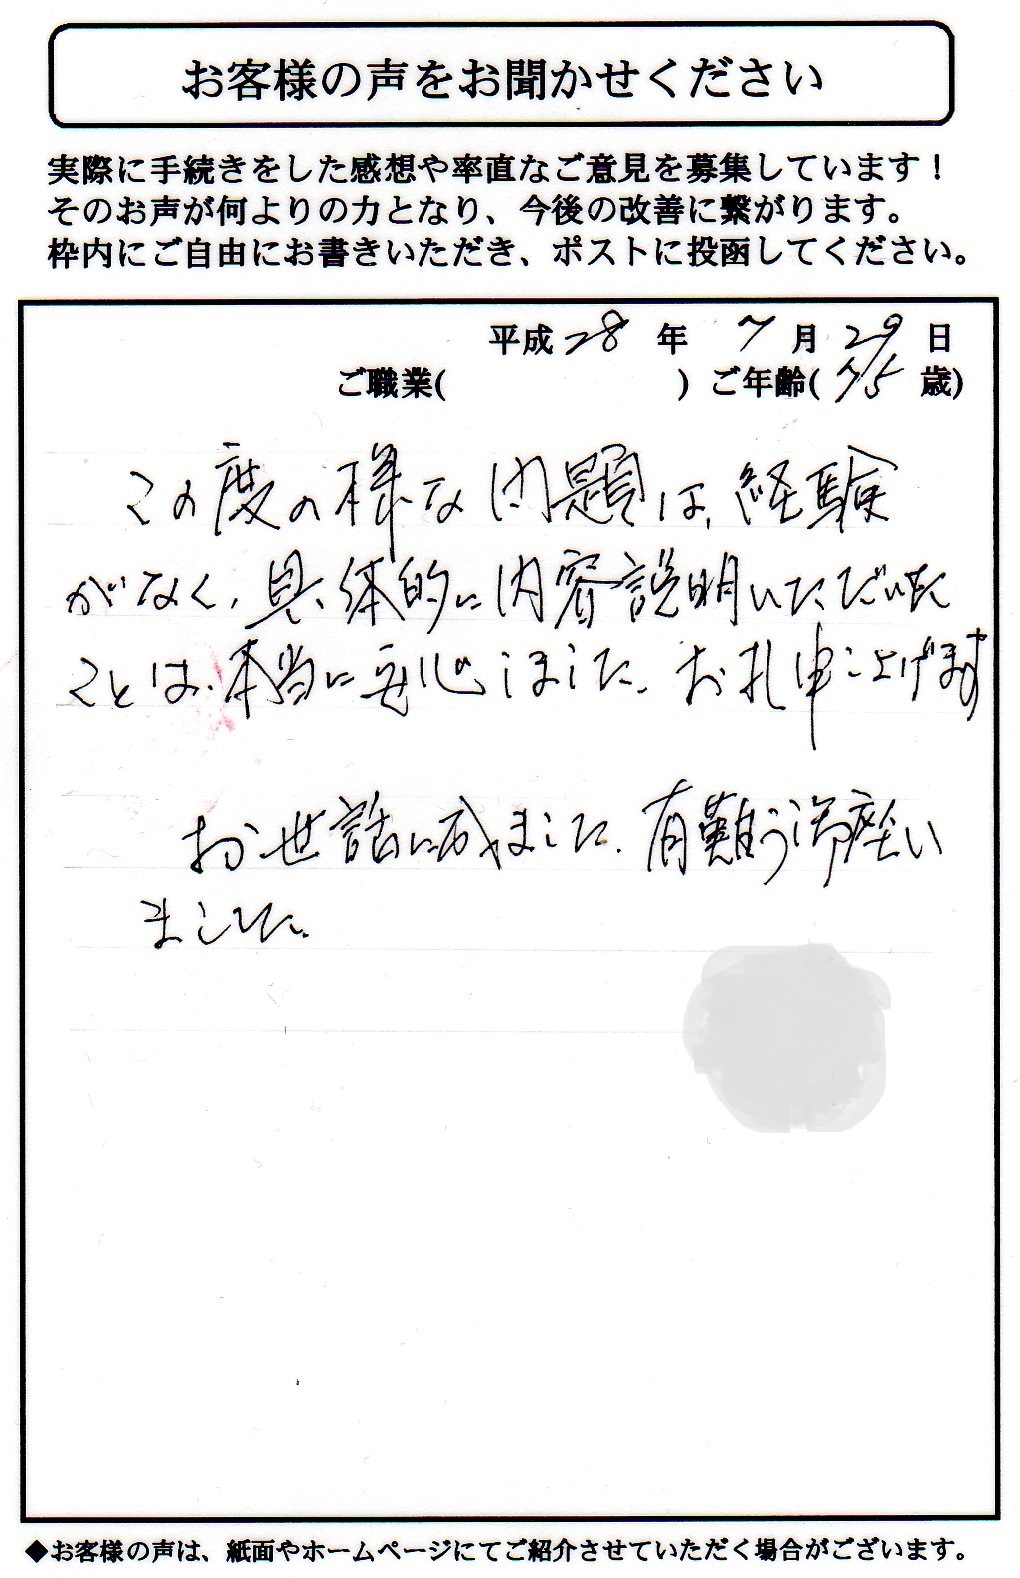 お客様の声をお聞かせください
実際に手続きをした感想や率直なご意見を募集しています！
そのお声が何よりの力となり、今後の改善に繋がります。
枠内にご自由にお書きいただき、ポストに投函してください。
平成 28 年 7 月 29 日
ご職業( ) ご年齢( 75 歳)
この度の様な問題は、経験
がなく、具体的に内容説明いただいた
ことは、本当に安心しました。お礼申し上げます
お世話に成りました。有難う御座い
ました。
◆お客様の声は、紙面やホームページにてご紹介させていただく場合がございます。